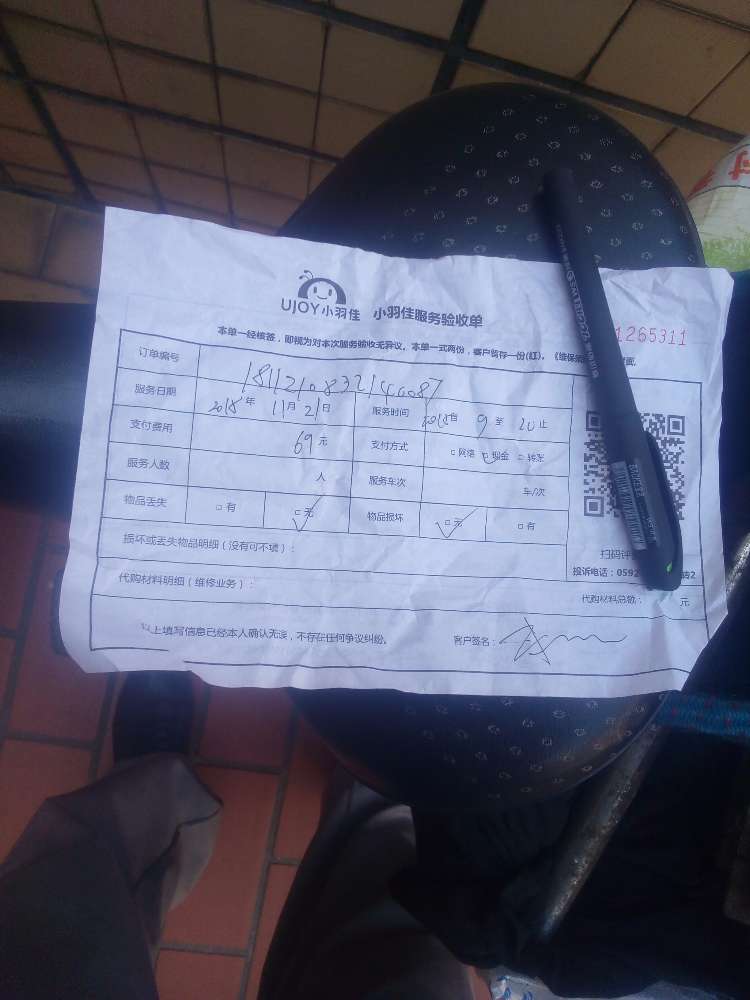 UJOY小羽佳 小羽佳服务验收单
1265311
本单一经核签，即视为对本次服务验收无异议。本单一式两份，客户留存一份(红)。《维保
订单编号
服务日期 2018年 11月 21日 服务时间 自 9 至 10 止
支付费用 69元 支付方式 □网络 □现金 □转账
服务人数 人 服务车次 车/次
物品丢失 □有 □无 物品损坏 □无 □有
损坏或丢失物品明细（没有可不填）：
扫码评
投诉电话：0592 转2
代购材料明细（维修业务）： 代购材料总额： 元
以上填写信息已经本人确认无误，不存在任何争议纠纷。 客户签名：